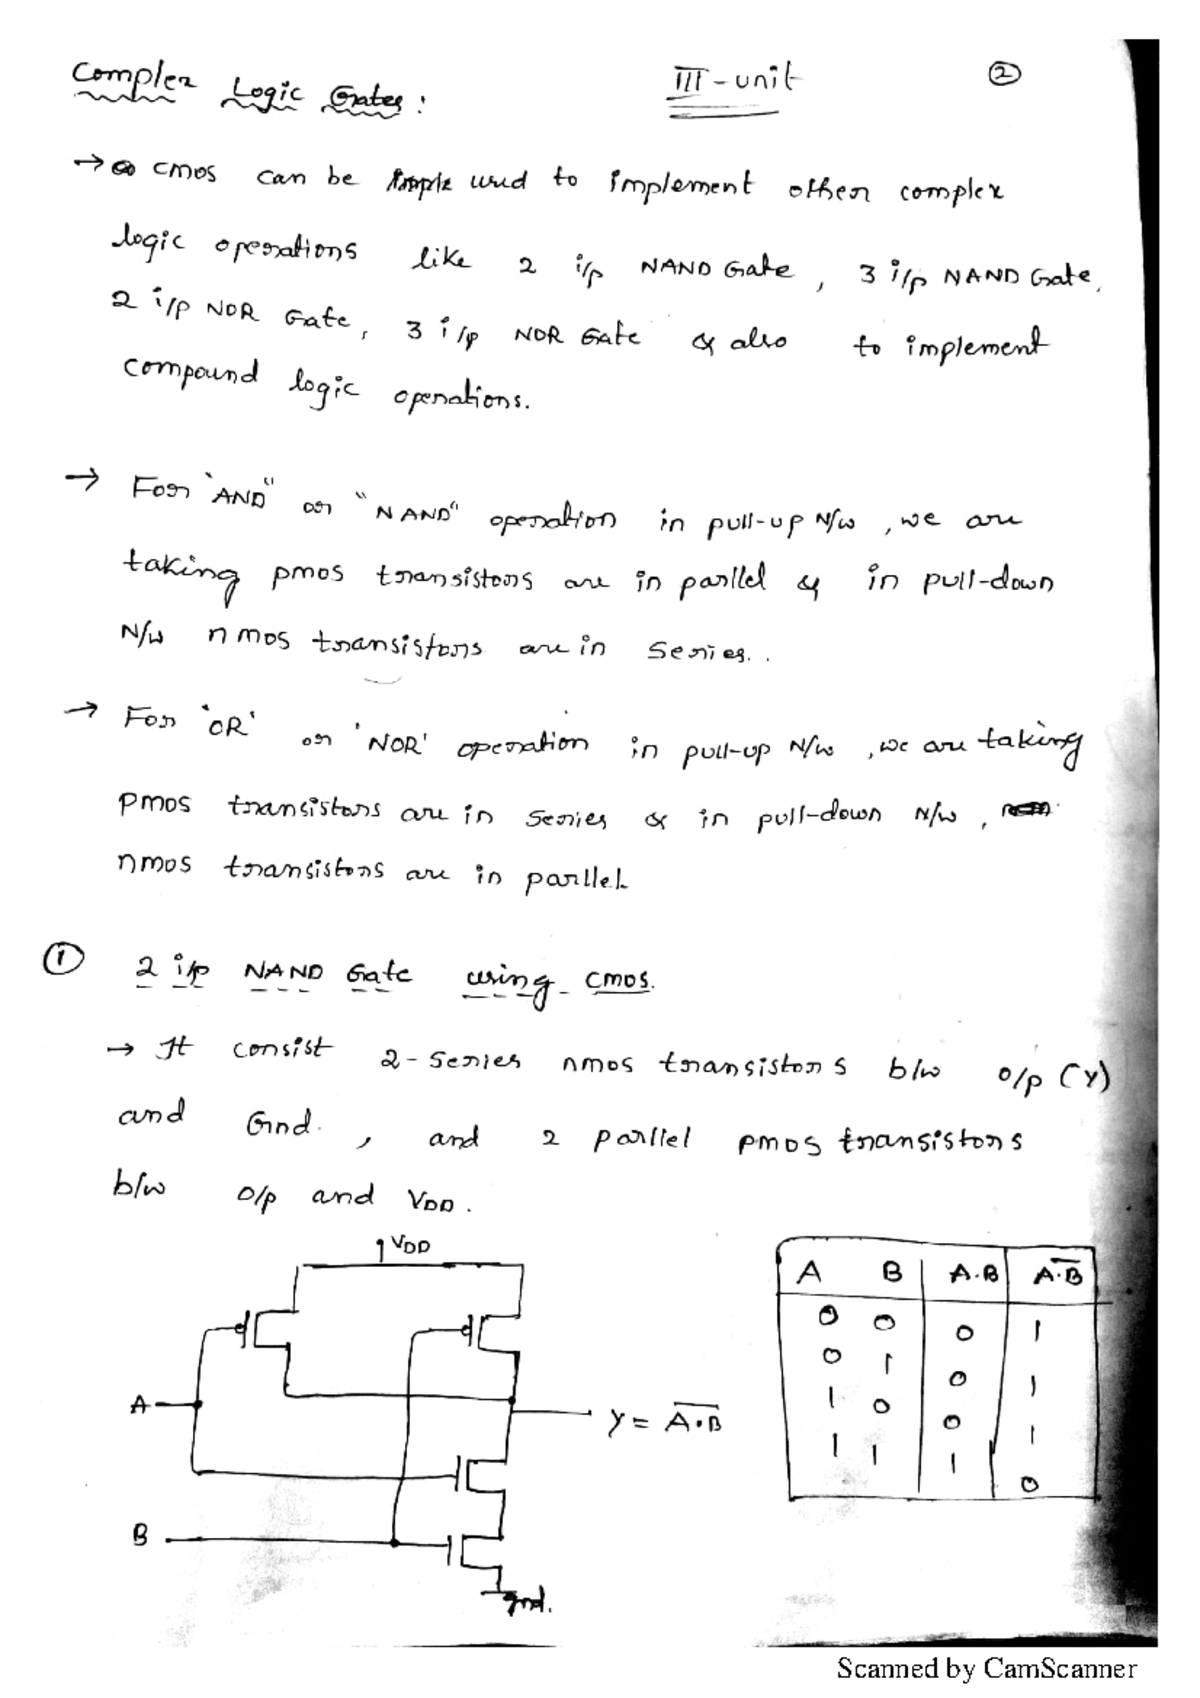 Complex Logic Gates:
III-unit
2
→ CMOS can be used to implement other complex
logic operations like 2 i/p NAND Gate, 3 i/p NAND Gate,
2 i/p NOR Gate, 3 i/p NOR Gate & also to implement
compound logic operations.
→ For "AND" or "NAND" operation in pull-up N/w, we are
taking pmos transistors are in parllel & in pull-down
N/w nmos transistors are in series..
→ For 'OR' or 'NOR' operation in pull-up N/w, we are taking
pmos transistors are in series & in pull-down N/w,
nmos transistors are in parllel.
① 2 i/p NAND Gate using CMOS.
→ It consist 2-series nmos transistors b/w o/p (Y)
and Gnd., and 2 parllel pmos transistors
b/w o/p and VDD.
VDD
A
B
Y = \overline{A.B}
gnd.
A B A.B \overline{A.B}
0 0 0 1
0 1 0 1
1 0 0 1
1 1 1 0
Scanned by CamScanner